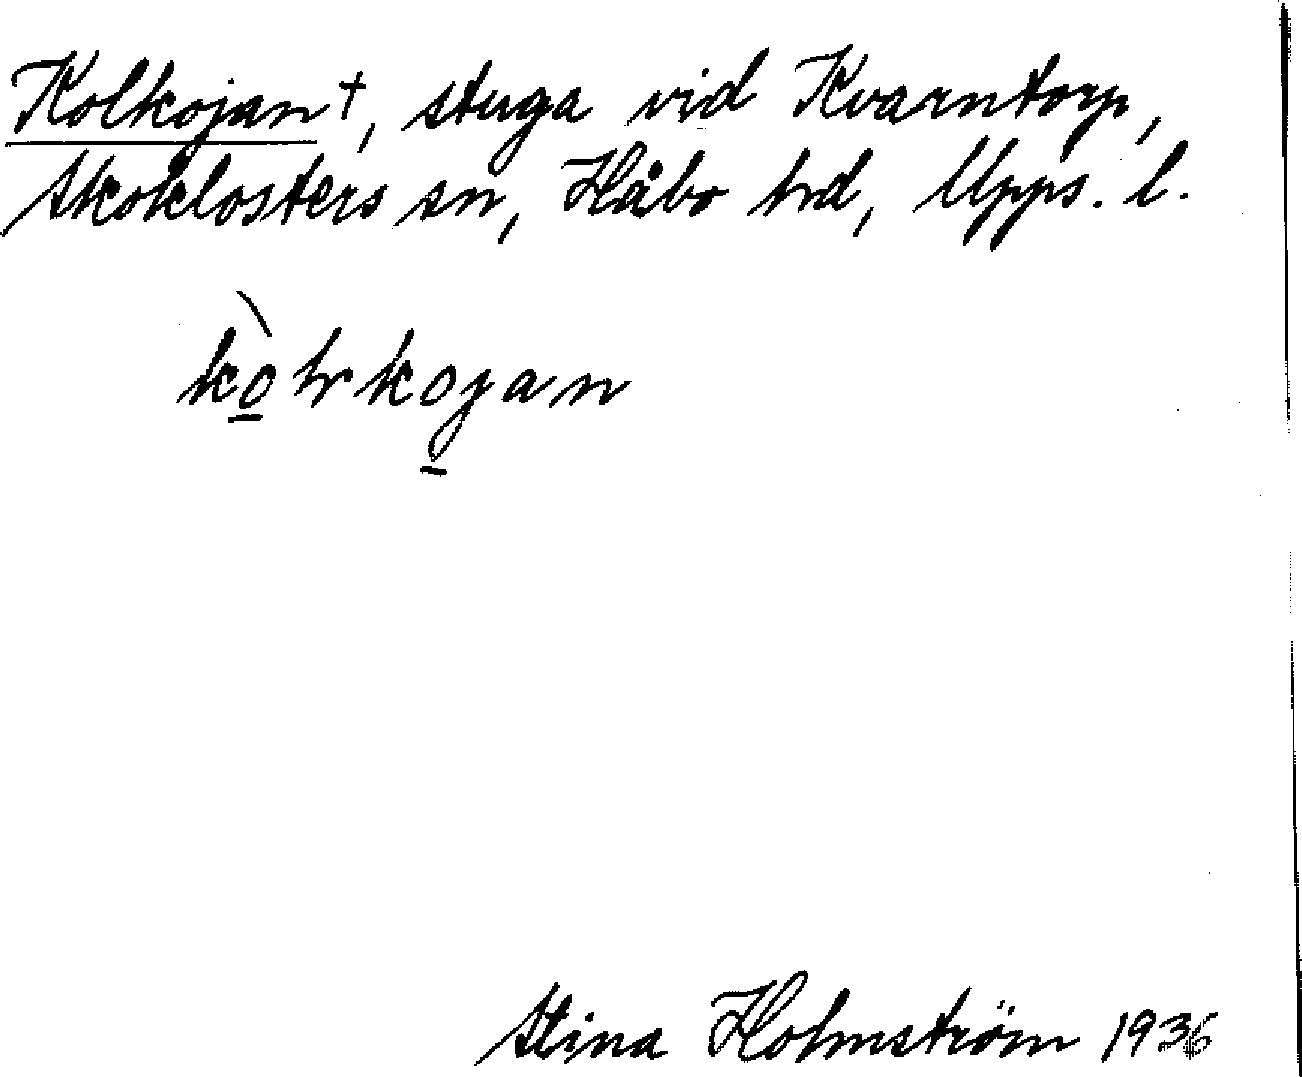 Kolkojan †, stuga vid Kvarntorp,
Skoklosters sn, Håbo hd, Upps. l.
kò̲lkojan
Stina Holmström 1936